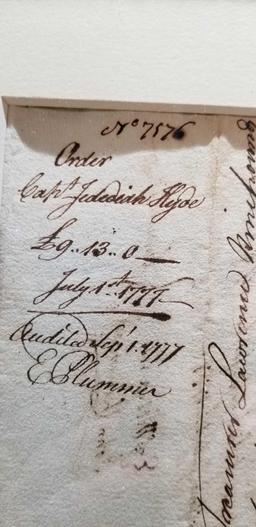 No 7576
Order
Capt Jedediah Hyde
£9..13..0
July 1st 1777
Audited Sepr 1. 1777
E Plummer
Lawrence